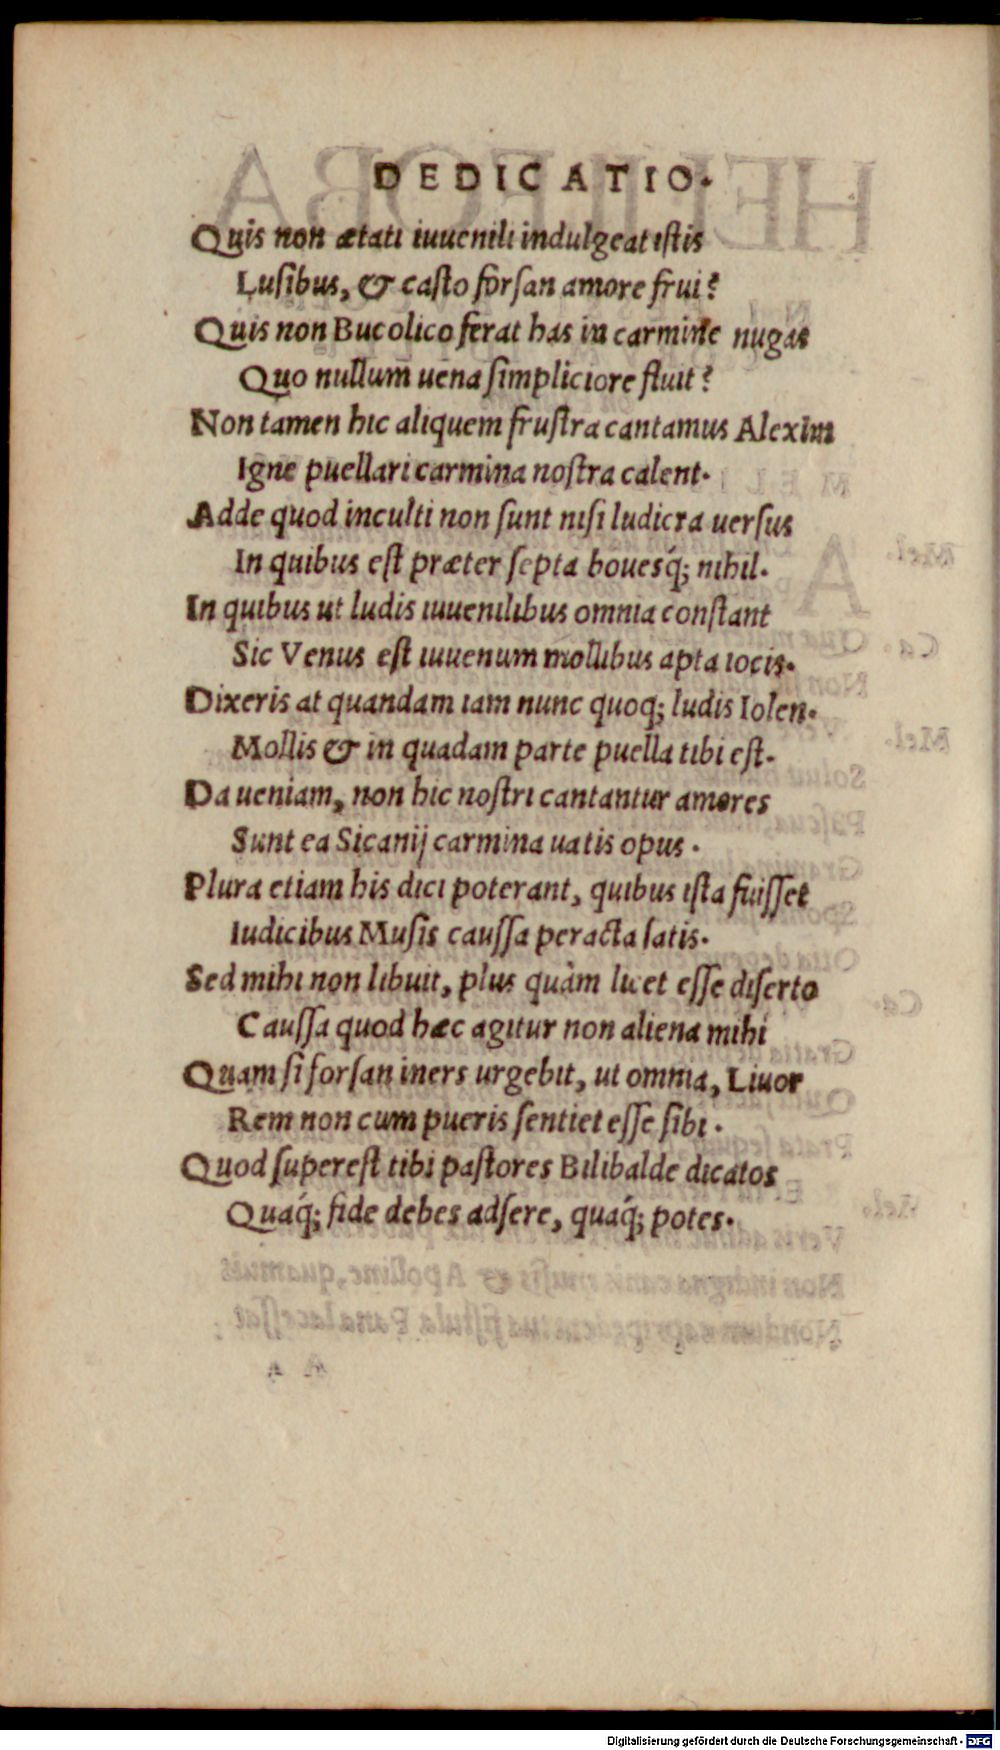 DEDICATIO.
Quis non ætati iuuenili indulgeat istis
Lusibus, & casto forsan amore frui?
Quis non Bucolico ferat has in carmine nugas
Quo nullum uena simpliciore fluit?
Non tamen hic aliquem frustra cantamus Alexim
Igne puellari carmina nostra calent.
Adde quod inculti non sunt nisi ludicra uersus
In quibus est præter septa bouesq́; nihil.
In quibus ut ludis iuuenilibus omnia constant
Sic Venus est iuuenum mollibus apta iocis.
Dixeris at quandam iam nunc quoq; ludis Iolen.
Mollis & in quadam parte puella tibi est.
Da ueniam, non hic nostri cantantur amores
Sunt ea Sicanij carmina uatis opus.
Plura etiam his dici poterant, quibus ista fuisset
Iudicibus Musis caussa peracta satis.
Sed mihi non libuit, plus quàm licet esse diserto
Caussa quod hæc agitur non aliena mihi
Quam si forsan iners urgebit, ut omnia, Liuor
Rem non cum pueris sentiet esse sibi.
Quod superest tibi pastores Bilibalde dicatos
Quaq́; fide debes adsere, quaq́; potes.
Digitalisierung gefördert durch die Deutsche Forschungsgemeinschaft - DFG